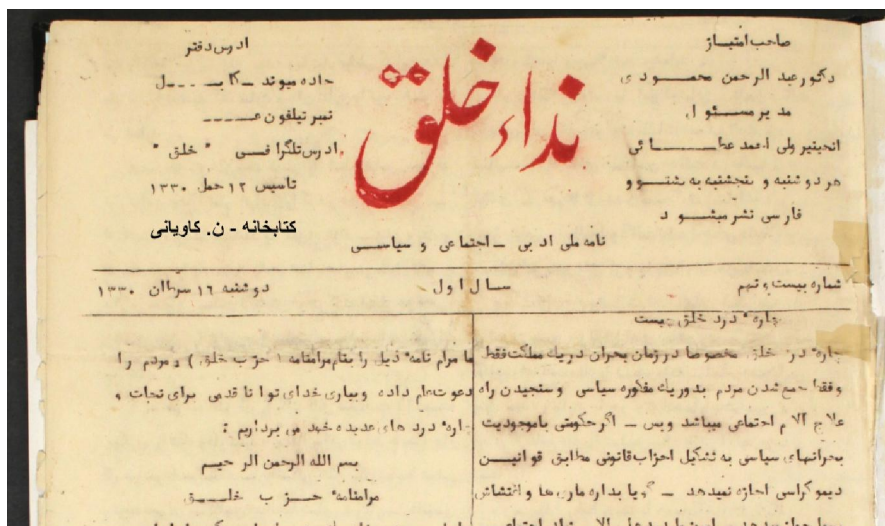 صاحب امتیاز
دکتور عبد الرحمن محمودی
مدیر مسئول
انجینیر ولی احمد عطائی
هر دو شنبه و پنجشنبه به پشتو و
فارسی نشر میشود
نداء خلق
ادرس دفتر
جاده میوند - کابل
نمبر تیلفون
ادرس تلگرافی " خلق "
تاسیس ۱۲ حمل ۱۳۳۰
کتابخانه - ن. کاویانی
نامه ملی ادبی - اجتماعی و سیاسی
شماره بیست و نهم
سال اول
دوشنبه ۱۶ سرطان ۱۳۳۰
چاره درد خلق چیست
چاره درد خلق مخصوصا در زمان بحران در یک مملکت فقط
و فقط جمع شدن مردم بدور یک مفکوره سیاسی و سنجیدن راه
علاج آلام اجتماعی میباشد وبس - اگر حکومتی باموجودیت
بحرانهای سیاسی به تشکیل احزاب قانونی مطابق قوانین
دیموکراسی اجازه نمیدهد - گویا بداره ماری ها و اغتشاش
ما مرام نامه ذیل را بنام مرامنامه ( حزب خلق ) و مردم را
دعوت عام داده و بیاری خدای توانا قدمی برای نجات و
چاره درد های عدیده خود می برداریم :
بسم الله الرحمن الرحیم
مرامنامه حزب خلق